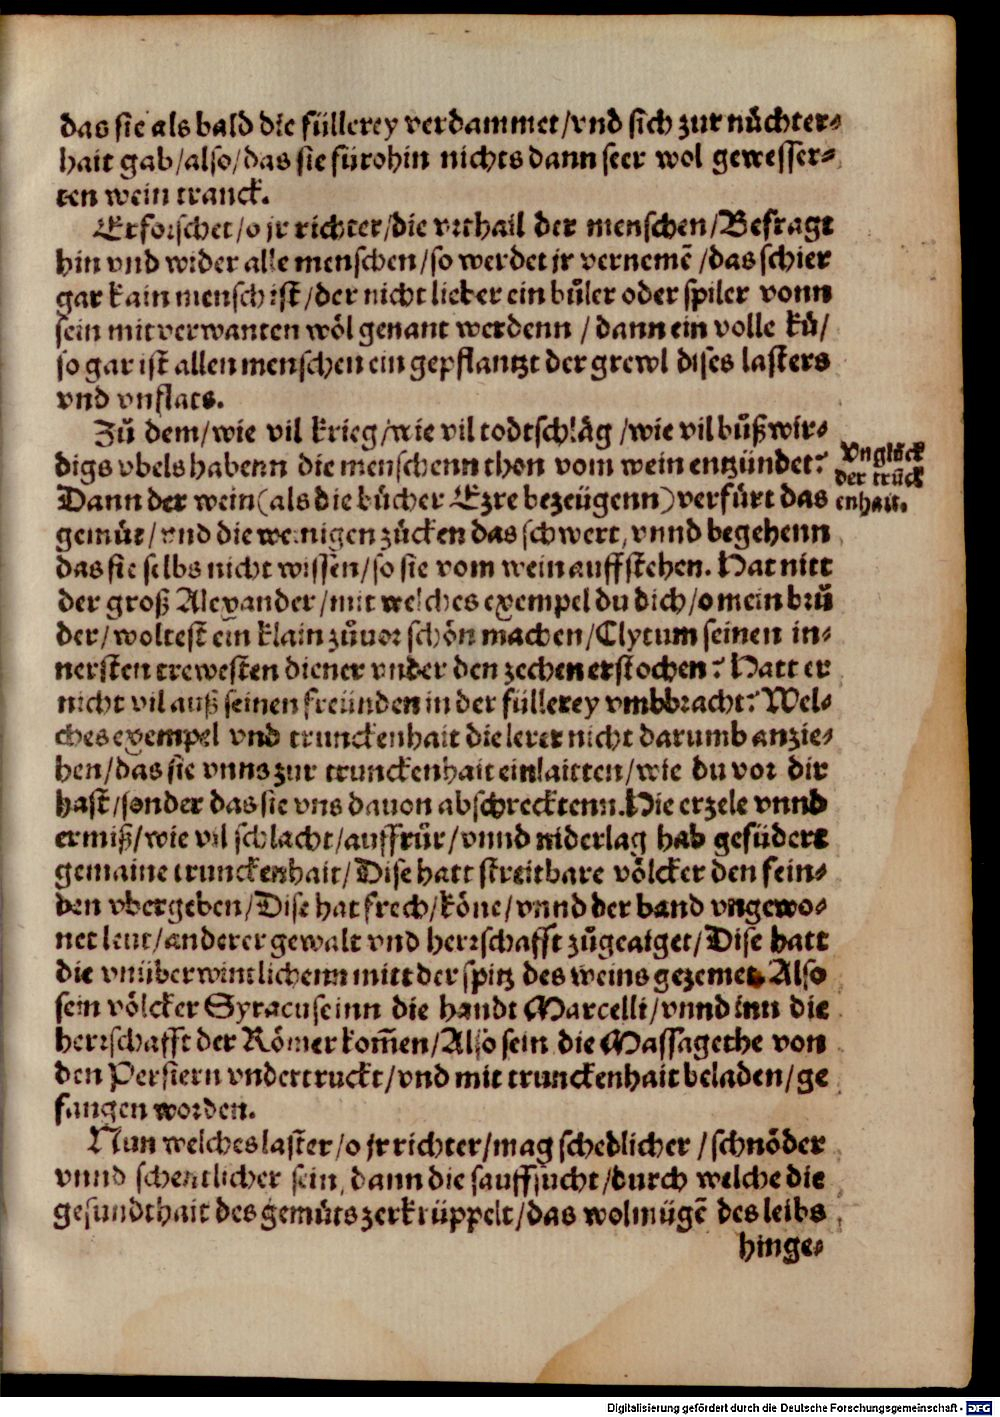 das sie als bald die füllerey verdammet/vnd sich zur nůchter⸗
hait gab/also/das sie fürohin nichts dann seer wol gewesser⸗
ten wein tranck.
Erforschet/o jr richter/die vrthail der menschen/Befragt
hin vnd wider alle menschen/so werdet jr vernemē/das schier
gar kain mensch ist/der nicht lieber ein bůler oder spiler vonn
sein mitverwanten wöl genant werdenn/dann ein volle ků/
so gar ist allen menschen ein gepflantzt der grewl dises lasters
vnd vnflats.
Zů dem/wie vil krieg/wie vil todtschläg/wie vil bůßwir⸗
digs vbels habenn die menschenn thon vom wein entzündet?
Vnglück
der trūck
enhait.
Dann der wein(als die bücher Ezre bezeügenn)verfürt das
gemůt/vnd die weinigen zücken das schwert, vnnd begehenn
das sie selbs nicht wissen/so sie vom wein auffstehen. Hat nitt
der groß Alexander/mit welches exempel du dich/o mein brů
der/woltest ein klain zůuor schön machen/Clytum seinen in⸗
nersten trewesten diener vnder den zechen erstochen? Hatt er
nicht vil auß seinen freünden in der füllerey vmbbracht? Wel⸗
ches exempel vnd trunckenhait die lerer nicht darumb anzie⸗
hen/das sie vnns zur trunckenhait einlaitten/wie du vor dir
hast/sonder das sie vns dauon abschrecktenn. Hie erzele vnnd
ermiß/wie vil schlacht/auffrůr/vnnd niderlag hab gefüdert
gemaine trunckenhait/Dise hatt streitbare völcker den fein⸗
den vbergeben/Dise hat frech/köne/vnnd der band vngewo⸗
net leut/anderer gewalt vnd herrschafft zůgeaiget/Dise hatt
die vnüberwintlichenn mitt der spitz des weins gezemet. Also
sein völcker Syracuseinn die handt Marcelli/vnnd inn die
herrschafft der Römer kom̄en/Also sein die Massagethe von
den Persiern vndertruckt/vnd mit trunckenhait beladen/ge
fangen worden.
Nun welches laster/o jr richter/mag schedlicher/schnöder
vnnd schentlicher sein, dann die sauffsucht/durch welche die
gesundthait des gemůts zerkrüppelt/das wolmügē des leibs
hinge⸗
Digitalisierung gefördert durch die Deutsche Forschungsgemeinschaft - DFG